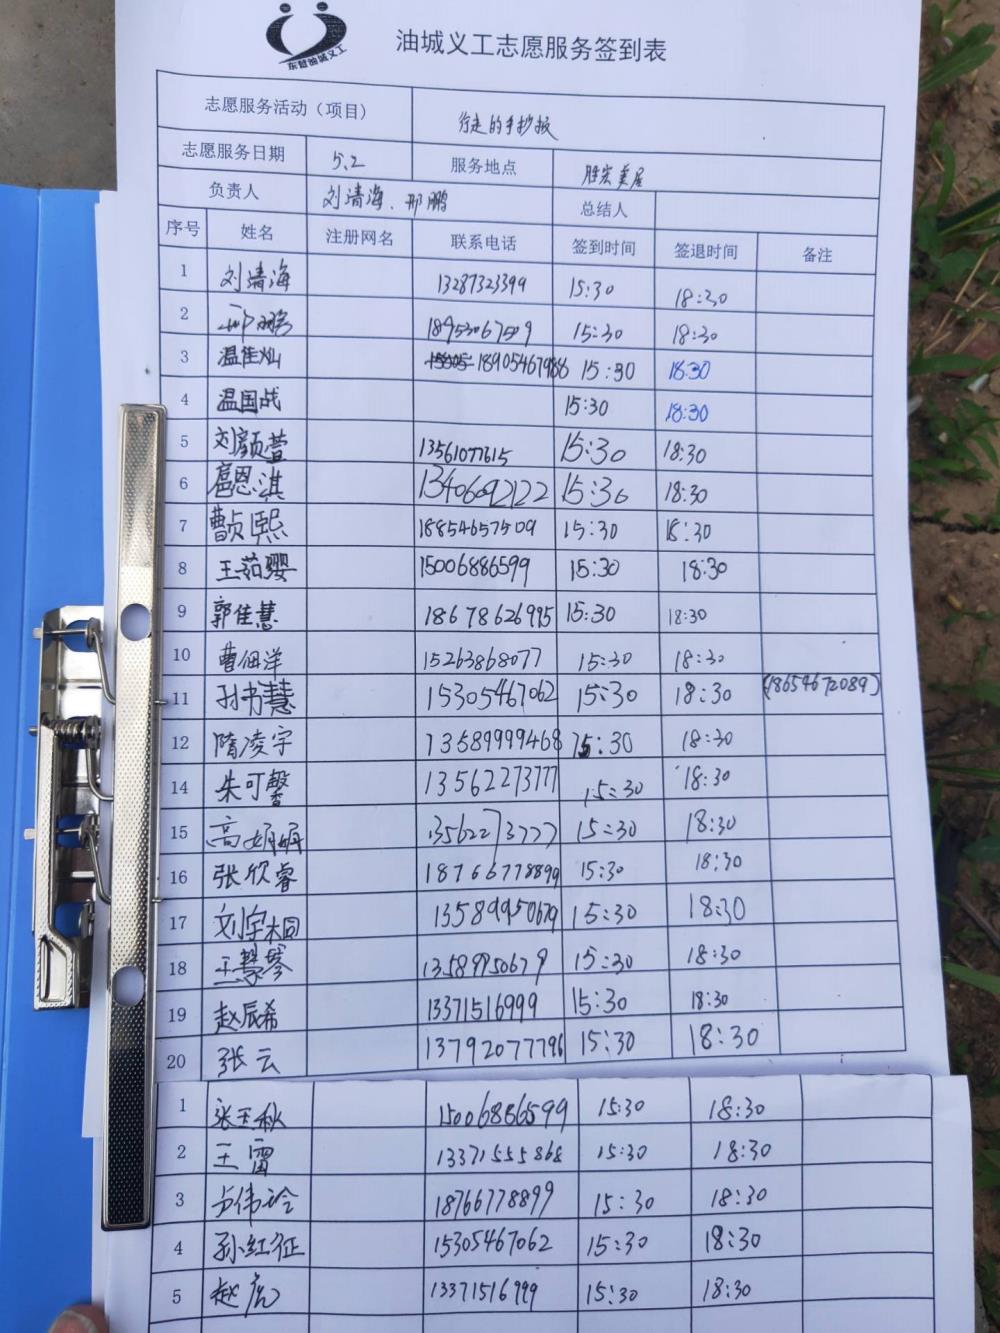 东营油城义工
油城义工志愿服务签到表
志愿服务活动（项目） 行走的手抄报
志愿服务日期 5.2 服务地点 胜宏美居
负责人 刘清海、邢鹏 总结人
序号 姓名 注册网名 联系电话 签到时间 签退时间 备注
1 刘清海 13287323399 15:30 18:30
2 邢鹏 18953067509 15:30 18:30
3 温佳灿 18905467988 15:30 18:30
4 温国战 15:30 18:30
5 刘颜萱 13561077615 15:30 18:30
6 扈恩淇 13406092122 15:30 18:30
7 曹贞熙 18854657509 15:30 18:30
8 王茹婴 15006886599 15:30 18:30
9 郭佳慧 18678626995 15:30 18:30
10 曹佃洋 15263868077 15:30 18:30
11 孙书慧 15305467062 15:30 18:30 (18654672089)
12 隋凌宇 13589999468 15:30 18:30
14 朱可馨 13562273777 15:30 18:30
15 高娟娟 13562273777 15:30 18:30
16 张欣睿 18766778899 15:30 18:30
17 刘宇 13589950679 15:30 18:30
18 王慧琴 13589950679 15:30 18:30
19 赵辰希 13371516999 15:30 18:30
20 张云 13792077796 15:30 18:30
1 张玉秋 15006886599 15:30 18:30
2 王雷 13371555868 15:30 18:30
3 卢伟玲 18766778899 15:30 18:30
4 孙红征 15305467062 15:30 18:30
5 赵虎 13371516999 15:30 18:30